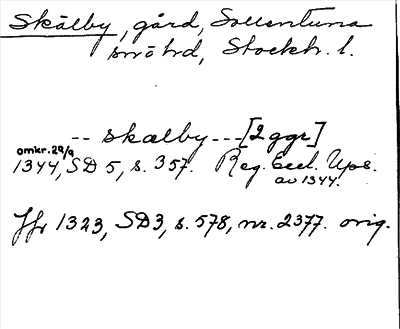 Skälby, gård, Sollentuna
småhd, Stockh. l.
-- skalby --- [2 ggr]
omkr. 29/9
1344, SD 5, s. 357. Reg. Eccl. Ups.
av 1344.
Jfr 1323, SD3, s. 578, nr. 2377. orig.